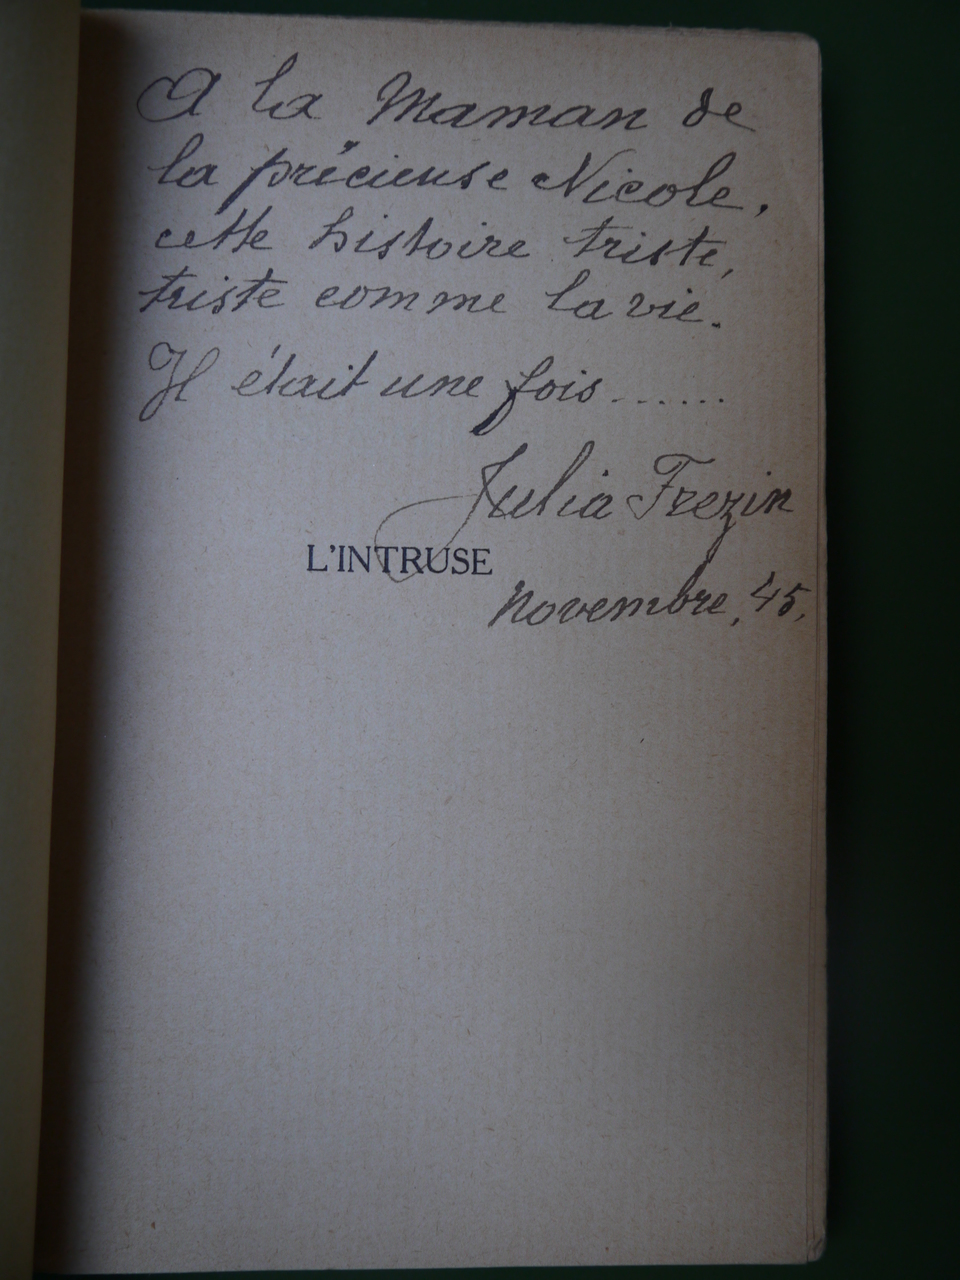 A la Maman de
la précieuse Nicole,
cette histoire triste,
triste comme la vie.
Il était une fois......
Julia Frezin
L'INTRUSE
Novembre, 45.